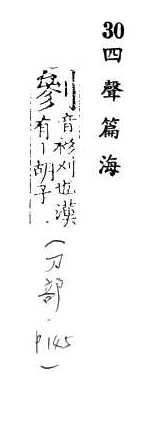 30四聲篇海
剼
音杉刈也漢
有丨胡子.
(刀部.P145)